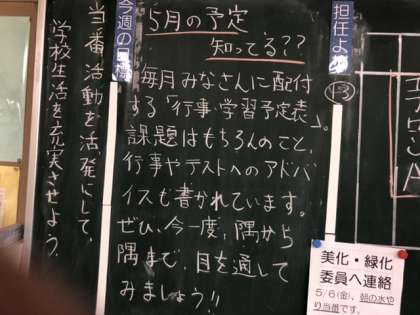 5月の予定
知ってる??
毎月みなさんに配付
する「行事・学習予定表」。
課題はもちろんのこと、
行事やテストへのアドバ
イスも書かれています。
ぜひ、今一度、隅から
隅まで、目を通して
みましょう!!
今週の目標
当番活動を活発にして、
学校生活を充実させよう。
担任よ
美化・緑化
委員へ連絡
5/6(金)、朝の水や
り当番です。